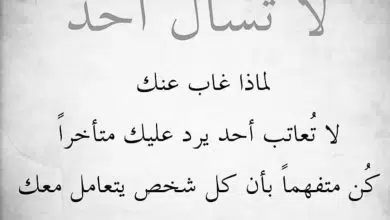 لا تسأل أحد
لماذا غاب عنك
لا تُعاتب أحد يرد عليك متأخراً
كُن متفهماً بأن كل شخص يتعامل معك